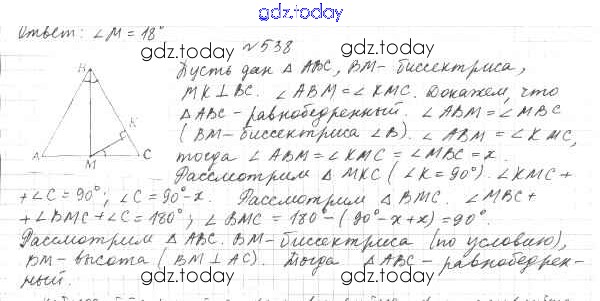 gdz.today
Ответ: ∠M = 18°
gdz.today
№538
gdz.today
B
Пусть дан △ABC, BM - биссектриса,
MK ⊥ BC. ∠ABM = ∠KMC. Докажем, что
△ABC - равнобедренный. ∠ABM = ∠MBC
K
(BM - биссектриса ∠B). ∠ABM = ∠KMC,
A M C
тогда ∠ABM = ∠KMC = ∠MBC = x.
gdz.today
gdz.today
Рассмотрим △MKC (∠K = 90°). ∠KMC +
+ ∠C = 90°; ∠C = 90° - x. Рассмотрим △BMC. ∠MBC +
+ ∠BMC + ∠C = 180°; ∠BMC = 180° - (90° - x + x) = 90°.
Рассмотрим △ABC. BM - биссектриса (по условию),
BM - высота (BM ⊥ AC). Тогда △ABC - равнобедрен-
ный.
gdz.today
gdz.today